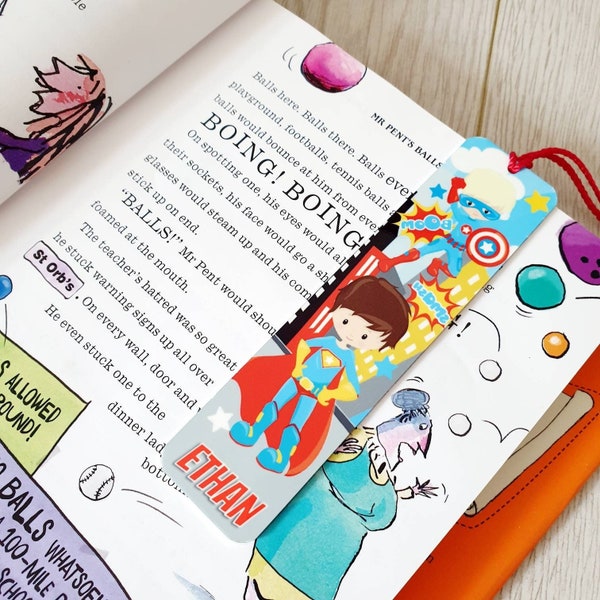 MR PENT'S BALLS
Balls here. Balls there. Balls eve
playground, footballs, tennis balls
balls would bounce at him from eve
BOING! BOING!
On spotting one, his eyes would al
their sockets, his face would go a sh
glasses would steam up and his con
stick up on end.
“BALLS!” Mr Pent would shou
foamed at the mouth.
The teacher's hatred was so great
he stuck warning signs up all over
St Orb's . On every wall, door and
He even stuck one to the
dinner lad
bottom
S ALLOWED
OUND!
BALLS WHATSOE
A 100-MILE
SCHOO
ETHAN